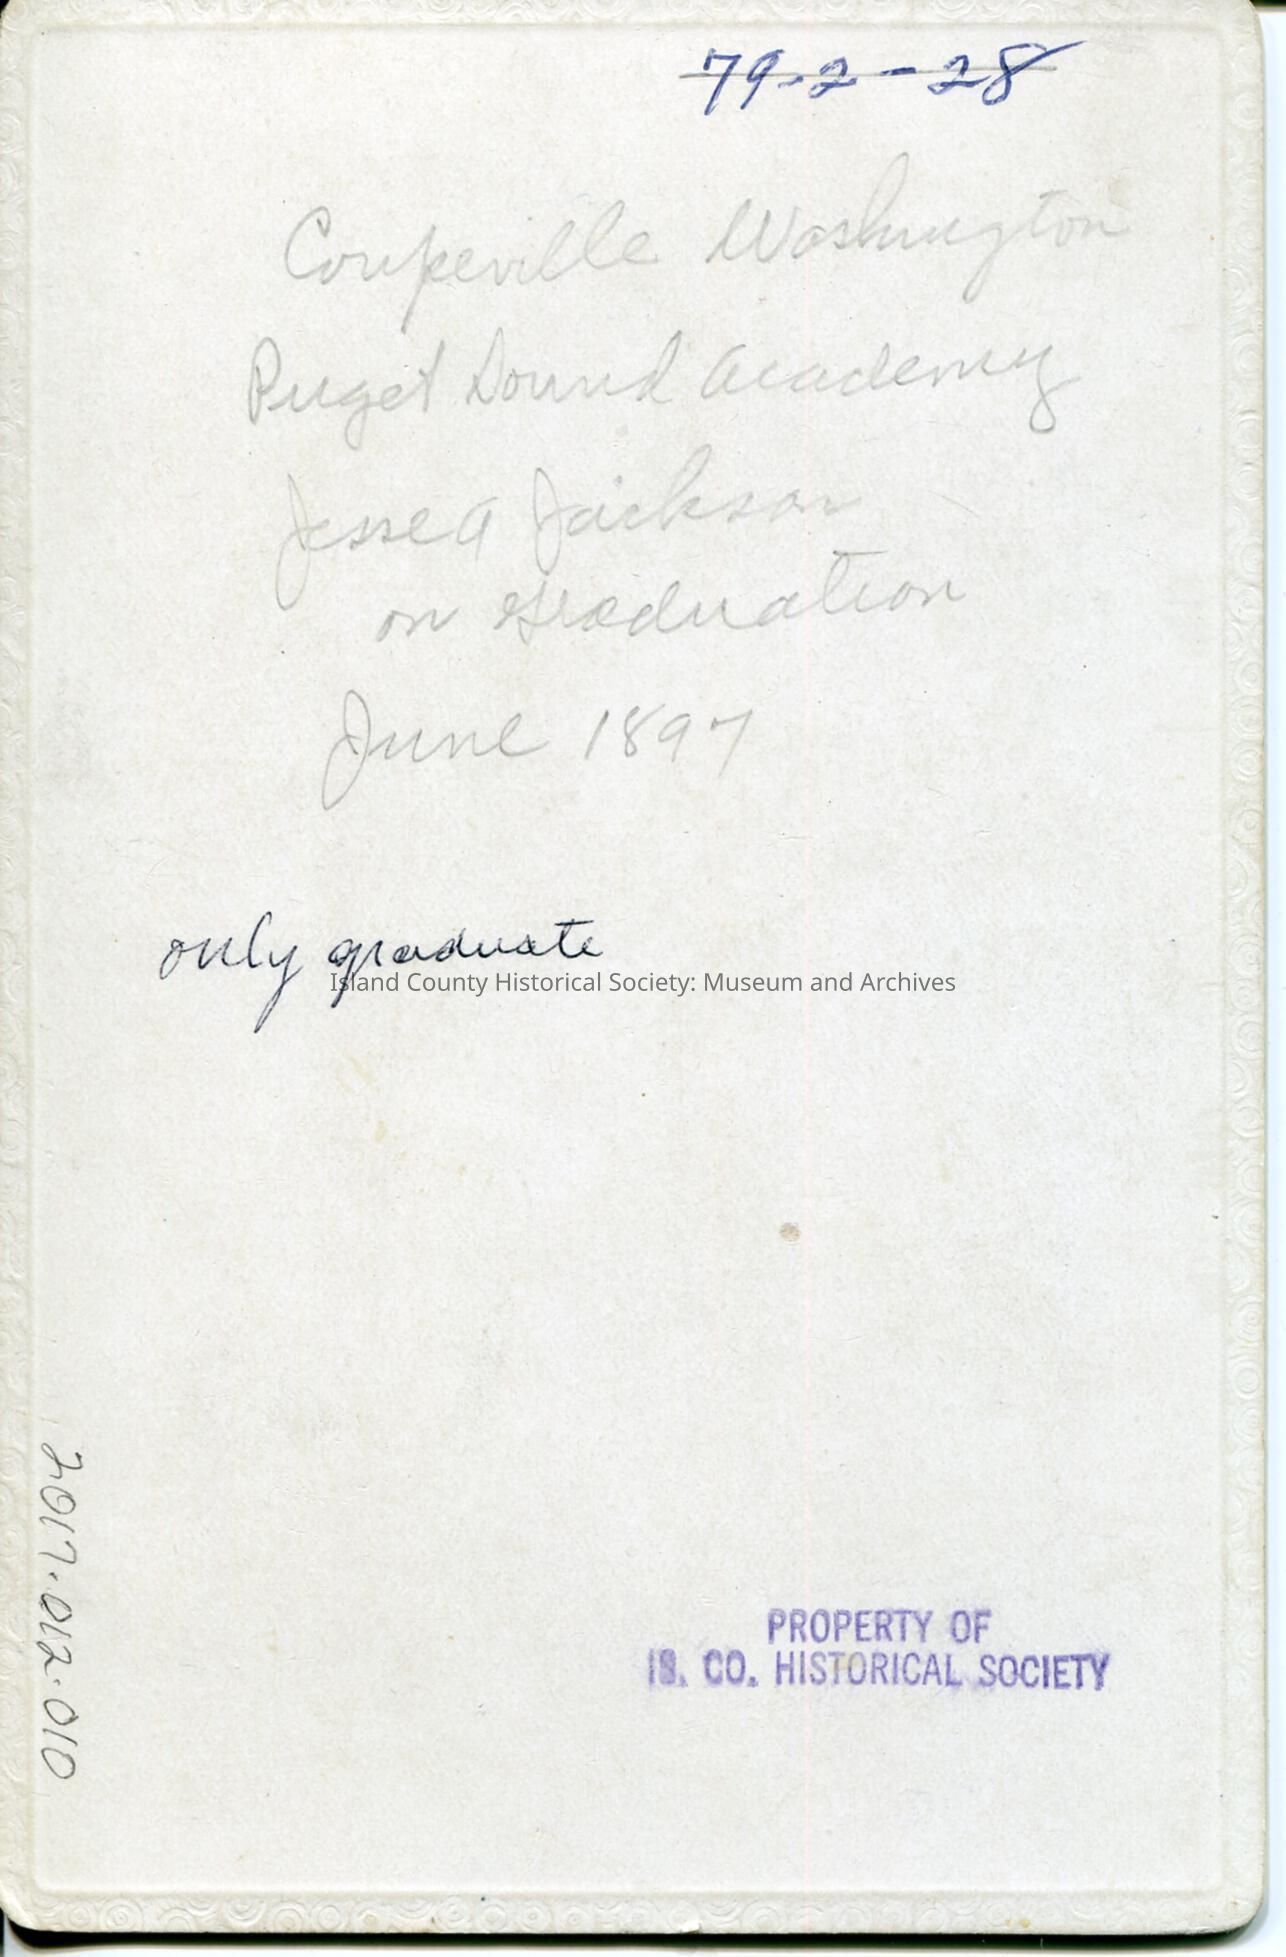 79-2-28
Coupeville Washington
Puget Sound Academy
Jesse A Jackson
on Graduation
June 1897
only graduate
Island County Historical Society: Museum and Archives
2017.012.010
PROPERTY OF
IS. CO. HISTORICAL SOCIETY